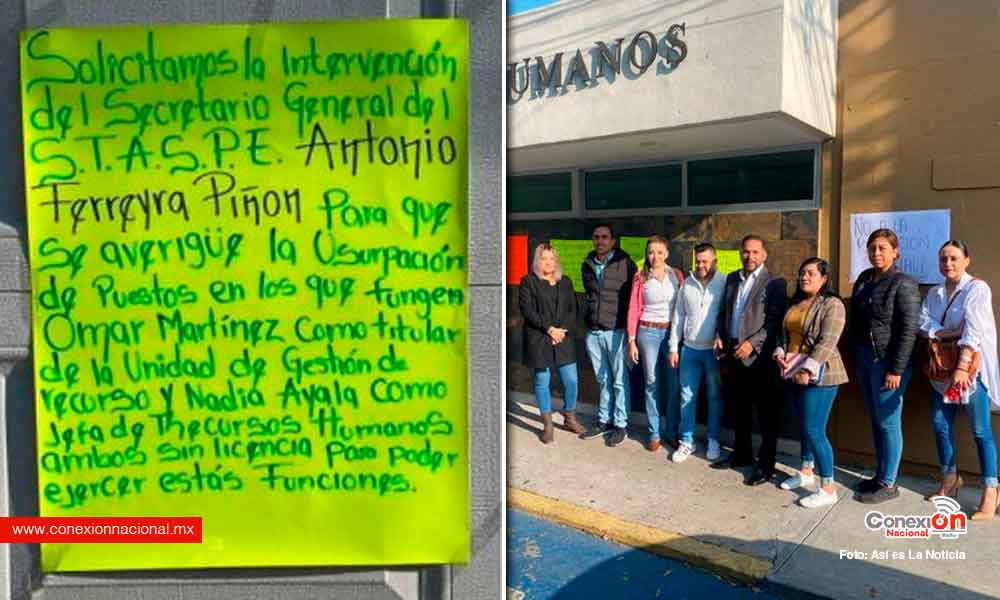 Solicitamos la Intervención
del Secretario General del
S.T.A.S.P.E. Antonio
Ferreyra Piñon Para que
se averigüe la Usurpación
de Puestos en los que fungen
Omar Martínez como titular
de la Unidad de Gestión de
recurso y Nadia Ayala como
Jefa de Recursos Humanos
ambos sin licencia para poder
ejercer estás Funciones.
www.conexionnacional.mx
UMANOS
NO A LA
Conexión
Nacional
Radio
Foto: Así es La Noticia